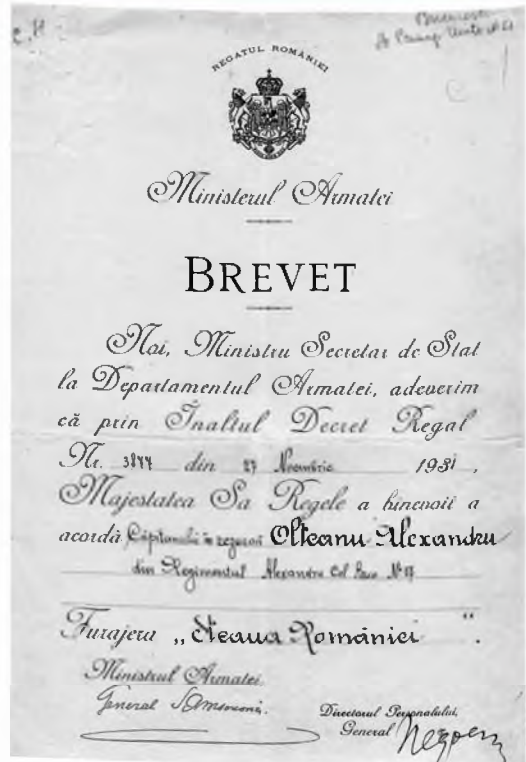 C.M
București
REGATUL ROMÂNIEI
Ministerul Armatei
BREVET
Noi, Ministru Secretar de Stat
la Departamentul Armatei, adeverim
că prin Înaltul Decret Regal
Nr. 3877 din 27 Noembrie 1931,
Majestatea Sa Regele a binevoit a
acordà Căpitanului în rezervă Olteanu Alexandru
din Regimentul Alexandru Cel Bun Nº
Furajera „Steaua României“.
Ministrul Armatei
General
Directorul Personalului,
General